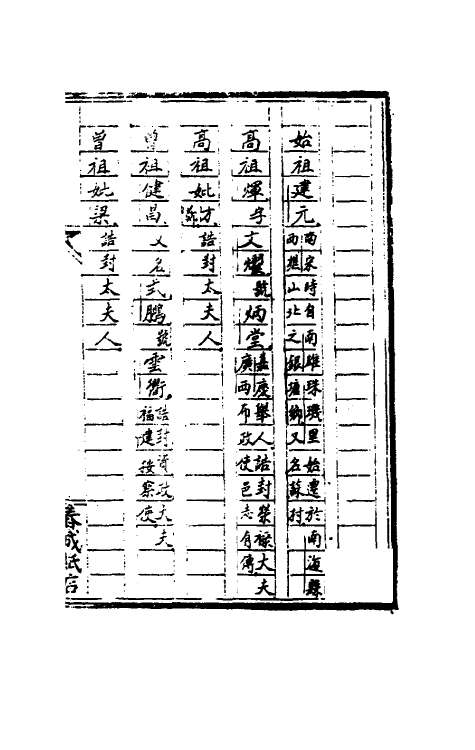 始祖建元南宋時自南雄珠璣里始遷於南海縣
西樵山北之銀塘鄉又名蘇村
高祖煇字文燿號炳堂嘉慶舉人誥封榮祿大夫
廣西布政使邑志有傳
高祖妣誥封太夫人
曾祖健昌又名式鵬號雲衢誥封資政大夫
福建按察使
曾祖妣梁誥封太夫人
成紙店